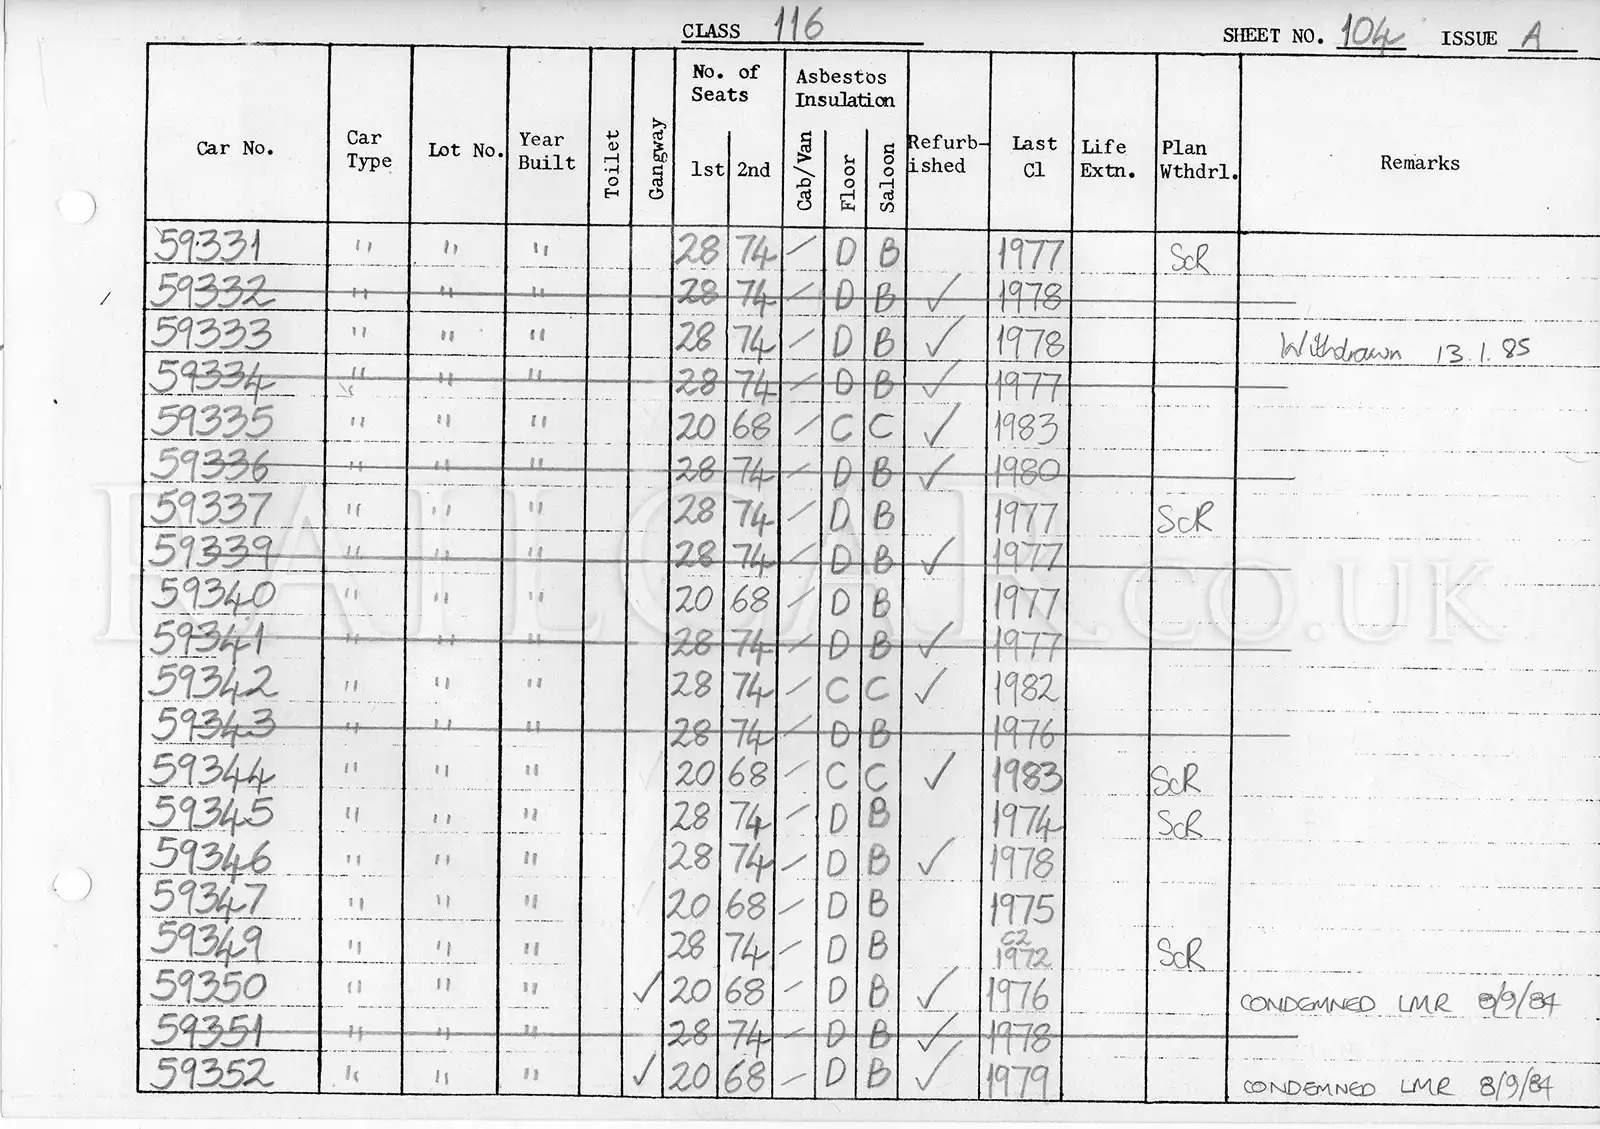 CLASS 116 SHEET NO. 104 ISSUE A
Car No. Car Type Lot No. Year Built Toilet Gangway No. of Seats 1st 2nd Asbestos Insulation Cab/Van Floor Saloon Refurb-ished Last Cl Life Extn. Plan Wthdrl. Remarks
59331 " " " 28 74 / D B 1977 ScR
59332 " " " 28 74 / D B ✓ 1978
59333 " " " 28 74 / D B ✓ 1978 Withdrawn 13.1.85
59334 " " " 28 74 / D B ✓ 1977
59335 " " " 20 68 / C C ✓ 1983
59336 " " " 28 74 / D B ✓ 1980
59337 " " " 28 74 / D B 1977 ScR
59339 " " " 28 74 / D B ✓ 1977
59340 " " " 20 68 / D B 1977
59341 " " " 28 74 / D B ✓ 1977
59342 " " " 28 74 / C C ✓ 1982
59343 " " " 28 74 / D B 1976
59344 " " " 20 68 / C C ✓ 1983 ScR
59345 " " " 28 74 / D B 1974 ScR
59346 " " " 28 74 / D B ✓ 1978
59347 " " " 20 68 / D B 1975
59349 " " " 28 74 / D B C2 1972 ScR
59350 " " " ✓ 20 68 / D B ✓ 1976 CONDEMNED LMR 8/9/84
59351 " " " 28 74 / D B ✓ 1978
59352 " " " ✓ 20 68 / D B ✓ 1979 CONDEMNED LMR 8/9/84
RAILCAR.CO.UK